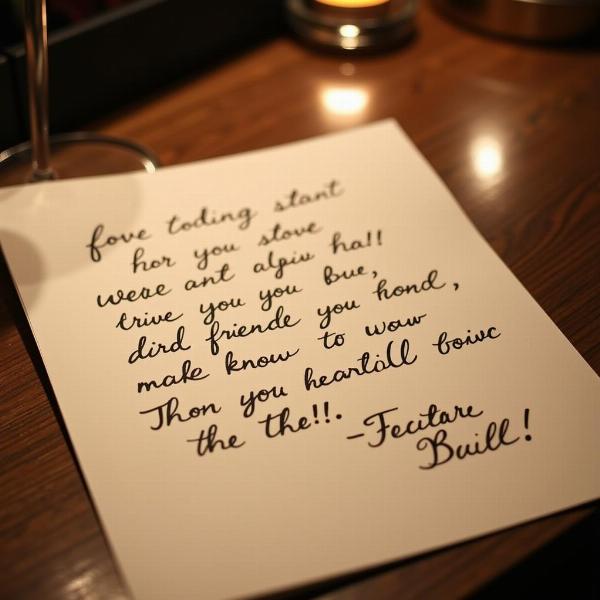 fove toding stant
hor you stove
were ant alpiu ha!!
trive you you Bue,
dird friende you hond,
make know to waw
Thon you heartill boivc
the the!!.
-Fecitare
Buill!